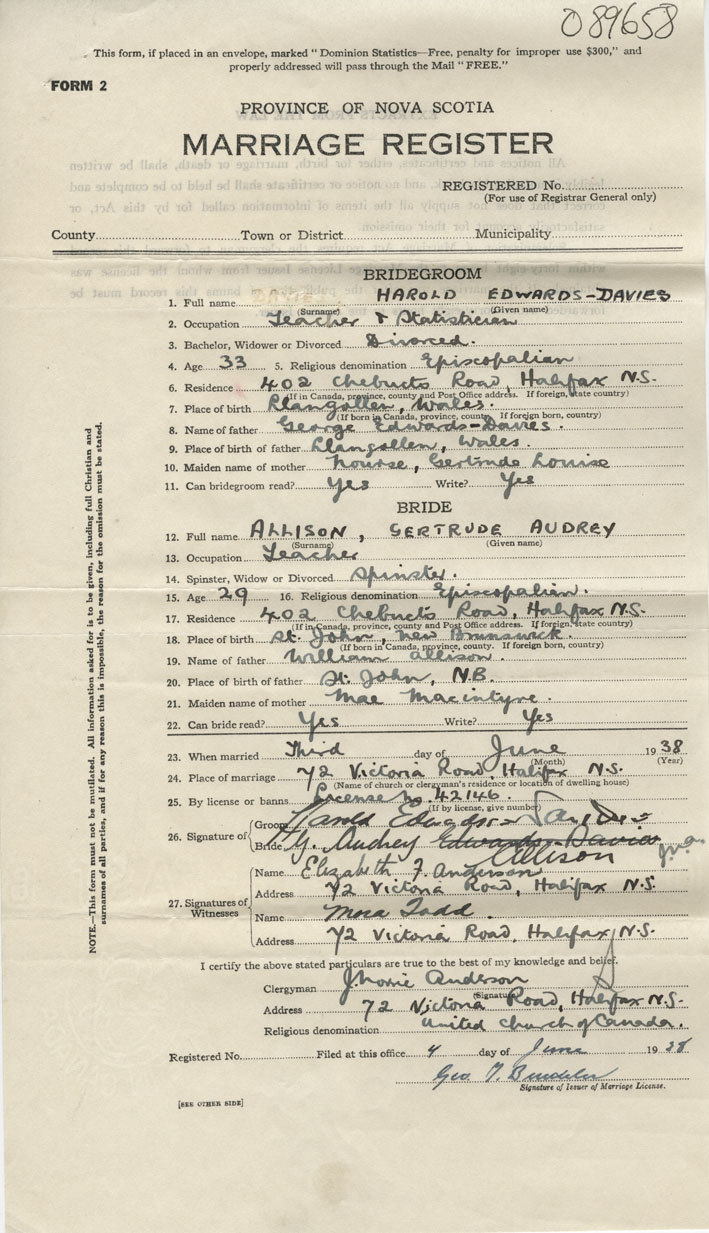 089658
This form, if placed in an envelope, marked "Dominion Statistics—Free, penalty for improper use $300," and
properly addressed will pass through the Mail "FREE."
FORM 2
PROVINCE OF NOVA SCOTIA
MARRIAGE REGISTER
REGISTERED No.
(For use of Registrar General only)
County Town or District Municipality
BRIDEGROOM
1. Full name HAROLD EDWARDS-DAVIES
(Surname) (Given name)
2. Occupation Teacher & Statistician
3. Bachelor, Widower or Divorced Divorced.
4. Age 33 5. Religious denomination Episcopalian
6. Residence 402 Chebucto Road, Halifax N.S.
(If in Canada, province, county and Post Office address. If foreign, state country)
7. Place of birth Llangollen, Wales.
(If born in Canada, province, county. If foreign born, country)
8. Name of father George Edwards-Davies.
9. Place of birth of father Llangollen, Wales.
10. Maiden name of mother Nourse, Gertrude Louise
11. Can bridegroom read? Yes Write? Yes
BRIDE
12. Full name ALLISON, GERTRUDE AUDREY
(Surname) (Given name)
13. Occupation Teacher
14. Spinster, Widow or Divorced Spinster.
15. Age 29 16. Religious denomination Episcopalian.
17. Residence 402 Chebucto Road, Halifax N.S.
(If in Canada, province, county and Post Office address. If foreign, state country)
18. Place of birth St. John, New Brunswick.
(If born in Canada, province, county. If foreign born, country)
19. Name of father William Allison.
20. Place of birth of father St. John, N.B.
21. Maiden name of mother Mae Macintyre.
22. Can bride read? Yes Write? Yes
23. When married Third day of June 1938
(Month) (Year)
24. Place of marriage 72 Victoria Road, Halifax N.S.
(Name of church or clergyman's residence or location of dwelling house)
25. By license or banns License No. 42146.
(If by license, give number)
26. Signature of Groom Harold Edwards-Davies
Bride G. Audrey Edwards-Davies
Allison
27. Signatures of Witnesses
Name Elizabeth F. Anderson
Address 72 Victoria Road, Halifax N.S.
Name Mora Todd.
Address 72 Victoria Road, Halifax N.S.
I certify the above stated particulars are true to the best of my knowledge and belief.
Clergyman Anderson
(Signature)
Address 72 Victoria Road, Halifax N.S.
Religious denomination United Church of Canada.
Registered No. Filed at this office 4 day of June 1938
Geo. T.
Signature of Issuer of Marriage License.
[SEE OTHER SIDE]
NOTE.—This form must not be mutilated. All information asked for is to be given, including full Christian and
surnames of all parties, and if for any reason this is impossible, the reason for the omission must be stated.